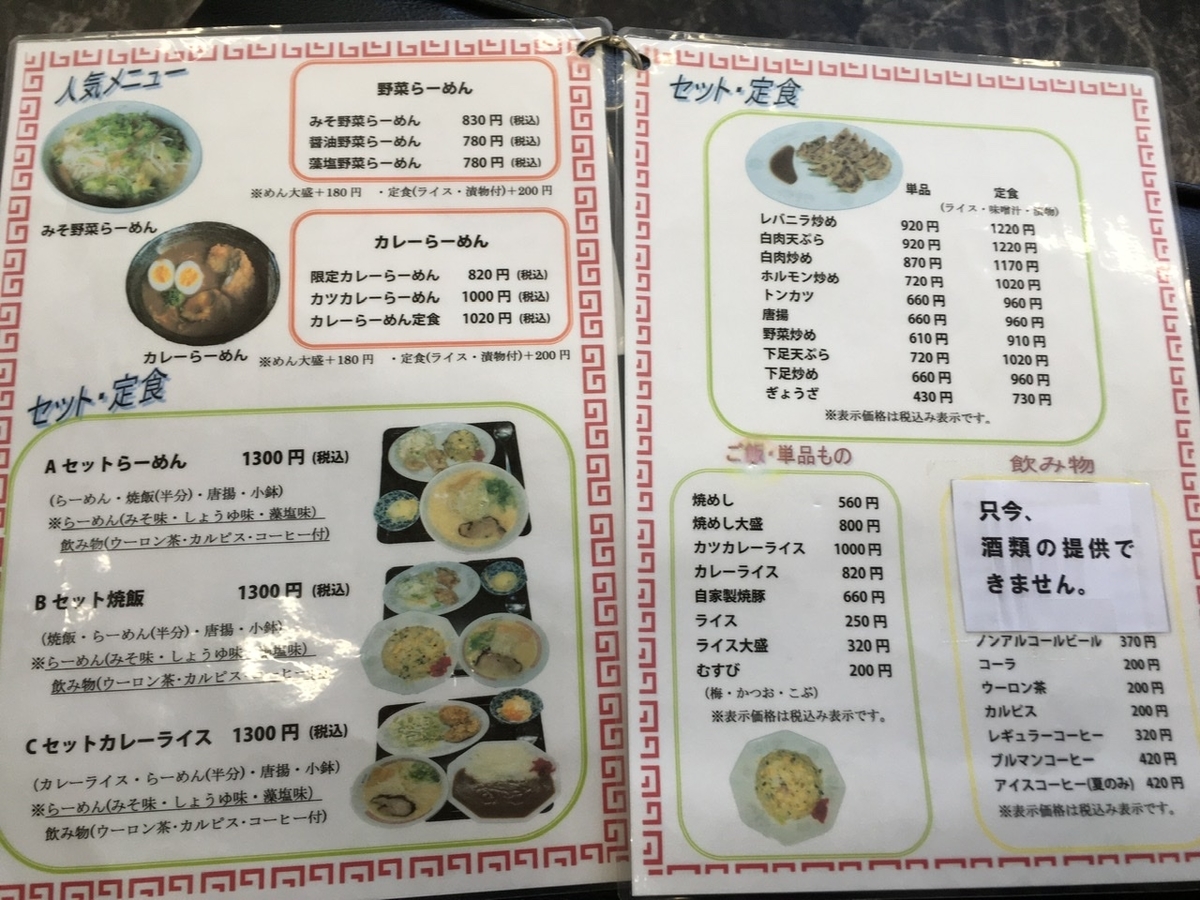 人気メニュー
野菜らーめん
みそ野菜らーめん 830円 (税込)
醤油野菜らーめん 780円 (税込)
藻塩野菜らーめん 780円 (税込)
※めん大盛+180円 ・定食(ライス・漬物付)+200円
みそ野菜らーめん
カレーらーめん
限定カレーらーめん 820円 (税込)
カツカレーらーめん 1000円 (税込)
カレーらーめん定食 1020円 (税込)
カレーらーめん
※めん大盛+180円 ・定食(ライス・漬物付)+200円
セット・定食
Aセットらーめん 1300円 (税込)
(らーめん・焼飯(半分)・唐揚・小鉢)
※らーめん(みそ味・しょうゆ味・藻塩味)
飲み物(ウーロン茶・カルピス・コーヒー付)
Bセット焼飯 1300円 (税込)
(焼飯・らーめん(半分)・唐揚・小鉢)
※らーめん(みそ味・しょうゆ味・藻塩味)
飲み物(ウーロン茶・カルピス・コーヒー付)
Cセットカレーライス 1300円 (税込)
(カレーライス・らーめん(半分)・唐揚・小鉢)
※らーめん(みそ味・しょうゆ味・藻塩味)
飲み物(ウーロン茶・カルピス・コーヒー付)
セット・定食
単品 定食
(ライス・味噌汁・漬物)
レバニラ炒め 920円 1220円
白肉天ぷら 920円 1220円
白肉炒め 870円 1170円
ホルモン炒め 720円 1020円
トンカツ 660円 960円
唐揚 660円 960円
野菜炒め 610円 910円
下足天ぷら 720円 1020円
下足炒め 660円 960円
ぎょうざ 430円 730円
※表示価格は税込み表示です。
ご飯・単品もの
焼めし 560円
焼めし大盛 800円
カツカレーライス 1000円
カレーライス 820円
自家製焼豚 660円
ライス 250円
ライス大盛 320円
むすび 200円
(梅・かつお・こぶ)
※表示価格は税込み表示です。
飲み物
只今、
酒類の提供で
きません。
ノンアルコールビール 370円
コーラ 200円
ウーロン茶 200円
カルピス 200円
レギュラーコーヒー 320円
ブルマンコーヒー 420円
アイスコーヒー(夏のみ) 420円
※表示価格は税込み表示です。